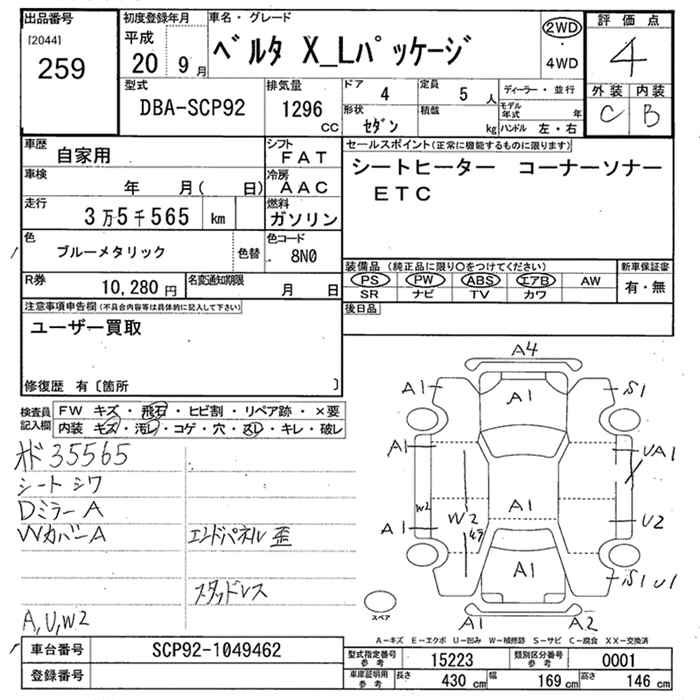 出品番号
[2044]
259
初度登録年月
平成
20 9 月
車名・グレード
ベルタ X_Lパッケージ
2WD
・
4WD
評価点
4
外装 内装
C B
型式
DBA-SCP92
排気量
1296
CC
ドア 4
定員 5 人
形状 セダン
積載 kg
ディーラー・並行
モデル年式 年
ハンドル 左・右
車歴
自家用
シフト
FAT
車検
年 月( 日)
冷房
AAC
走行
3万5千565 km
燃料
ガソリン
色
ブルーメタリック
色替
色コード
8N0
R券
10,280 円
名変通知期限
月 日
セールスポイント(正常に機能するものに限ります)
シートヒーター コーナーソナー
ETC
装備品(純正品に限り○をつけてください)
PS PW ABS エアB AW
SR ナビ TV カワ
新車保証書
有・無
後日品
注意事項申告欄(不具合内容等は具体的に記入して下さい)
ユーザー買取
修復歴 有〔箇所 〕
検査員
記入欄
FW キズ・飛石・ヒビ割・リペア跡・×要
内装 キズ・汚レ・コゲ・穴・スレ・キレ・破レ
オド 35565
シート シワ
Dミラー A
Wカバー A
エンドパネル 歪
スタッドレス
A,U,W2
A4
A1 A1 S1
A1 UA1
W2 W2 A1 U2
A1
A1 S1 U1
A1 A2
スペア
A-キズ E-エクボ U-凹み W-補修跡 S-サビ C-腐食 XX-交換済
車台番号
SCP92-1049462
登録番号
型式指定番号
参考
15223
類別区分番号
参考
0001
車庫証明用
参考
長さ 430 cm
幅 169 cm
高さ 146 cm